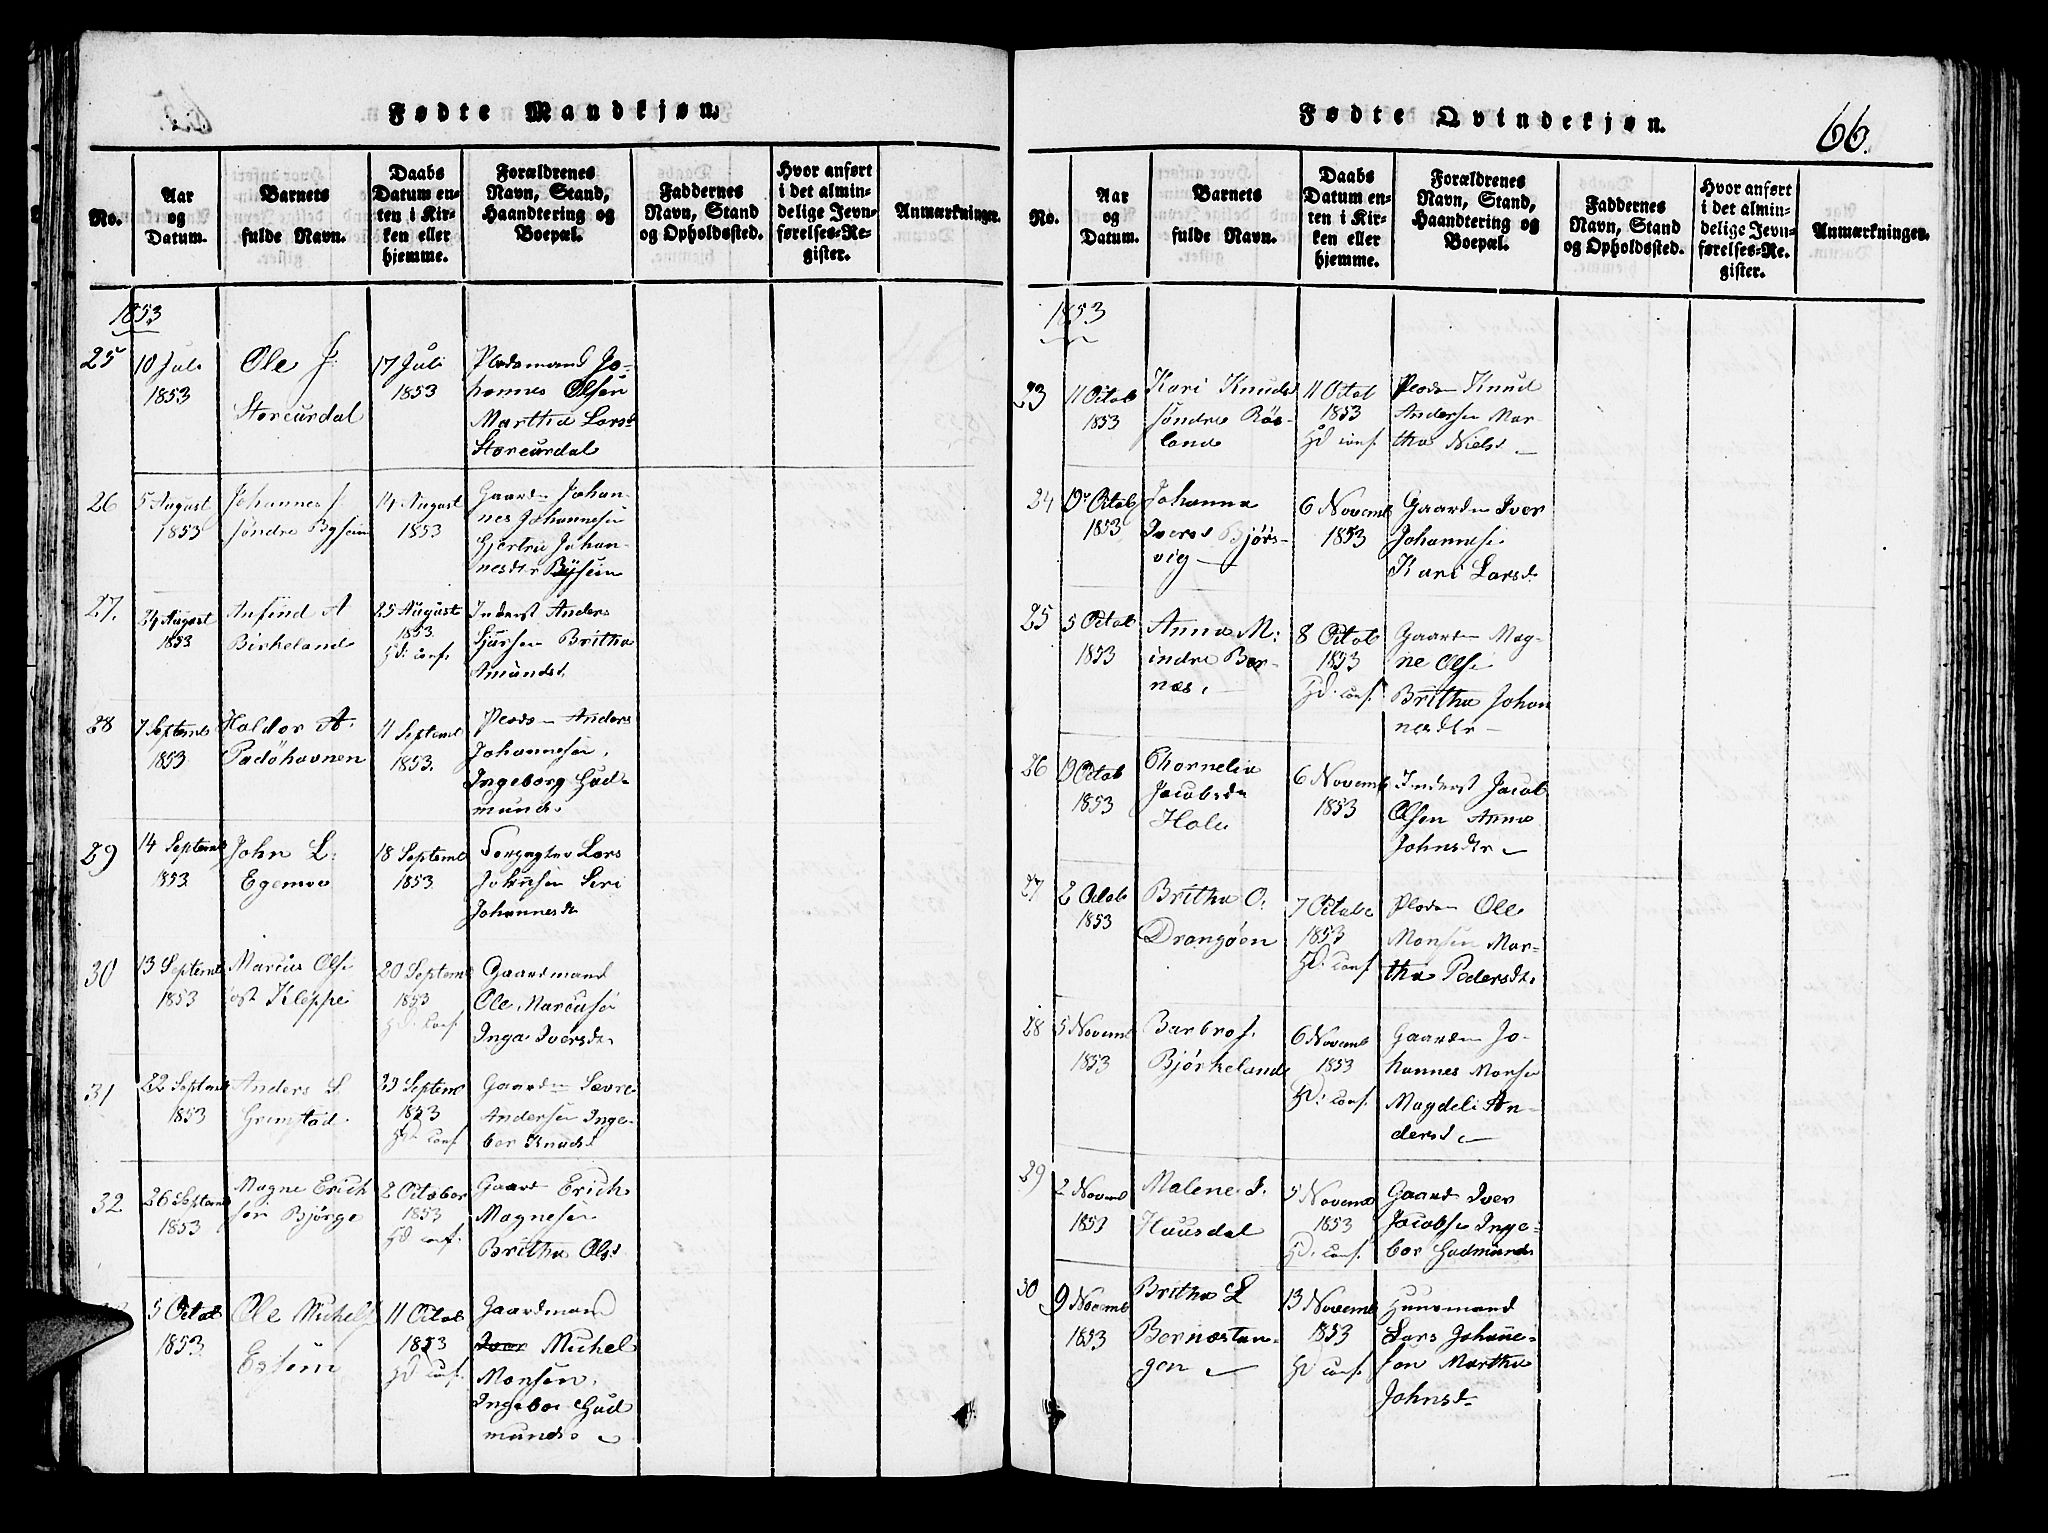 Fødte Mandkjøn.
No.
Aar og Datum.
Barnets fulde Navn.
Daabs Datum enten i Kirken eller hjemme.
Forældrenes Navn, Stand, Haandtering og Boepæl.
Faddernes Navn, Stand og Opholdssted.
Hvor anført i det almindelige Jevnførelses-Register.
Anmærkninger.
1853
25
10 Juli
1853
Ole J.
Storeurdal
17 Juli
1853
Pladsmand Jo-
hannes Olsen
Martha Larsd
Storeurdal
26
5 August
1853
Johannes J.
søndre Bysem
14 August
1853
Gaardm Johan-
nes Johannesen
Gjertru Johan-
nesdtr Bysem
27.
24 August
1853
Anfind A
Birkeland
25 August
1853
Hd: conf.
Inderst Anders
Sjursen Britha
Amundsd.
28
7 Septemb
1853
Haldor A.
Padöhavnen
11 Septemb
1853.
Pladsm Anders
Johannesen,
Ingeborg Gud-
mundsd
29
14 Septemb
1853
John L.
Egemoe
18 Septemb
1853
Forpagter Lars
Johnsen Seri
Johannesd
30
13 Septemb
1853
Marcus Olse
øst Kleppe
20 Septemb
1853
Hd: conf.
Gaardmand
Ole Marcuse
Inga Iversd
31
22 Septemb
1853
Anders S.
Grimstad
29 Septemb
1853
Hd. conf.
Gaardm Sævre
Andersen Inge-
bor Knudsd
32
26 Septemb
1853
Magne Erich
sen Bjørge
2 October
1853
Hd conf.
Gaard Erich
Magnesen
Britha Olsd
5 Octob
1853
Ole Michels
Estem
11 Octob
1853
Hd conf.
Gaardmand
Iver Michel
Monsen,
Ingebor Gud
mundsd
Fødte Qvindekjøn.
66.
No.
Aar og Datum.
Barnets fulde Navn.
Daabs Datum enten i Kirken eller hjemme.
Forældrenes Navn, Stand, Haandtering og Boepæl.
Faddernes Navn, Stand og Opholdssted.
Hvor anført i det almindelige Jevnførelses-Register.
Anmærkninger.
1853
23
11 Octob
1853
Kari Knuds
søndre Rös-
land
11 Octob
1853
Hd conf.
Pladsm Knud
Andersen Mar-
tha Nielsd
24
Octob
1853
Johanna
Iversd Bjørs-
vig
6 Novemb
1853
Gaardm Iver
Johannesen
Kari Larsd
25
5 Octob
1853
Anna M:
indre Ber-
næs.
8 Octob
1853
Hd. conf.
Gaardm Mag-
ne Olse
Britha Johan
nesdtr
26
Octob
1853
Chornelia
Jacobsdr
Hole
6 Novemb
1853
Inderst Jacob
Olsen Anna
Johnsdtr
27
2 Octob
1853
Britha O.
Drangöen
7 Octob
1853
Hd: conf.
Pladsm Ole
Monsen Mar-
tha Pedersdt.
28
5 Novemb
1853
Barbro J.
Bjørkeland
6 Novemb
1853
Hd: conf.
Gaardm Jo-
hannes Monse
Magdeli An-
dersd
29
2 Novemb
1853
Malene I.
Huusdal
5 Novemb
1853
Hd. conf.
Gaard Iver
Jacobse Inge-
bor Gudmunds
30
9 Novemb
1853
Britha L
Bernæstan-
gen
13 Novemb
1853
Hd conf.
Huusmand
Lars Johane-
sen Martha
Johnsd